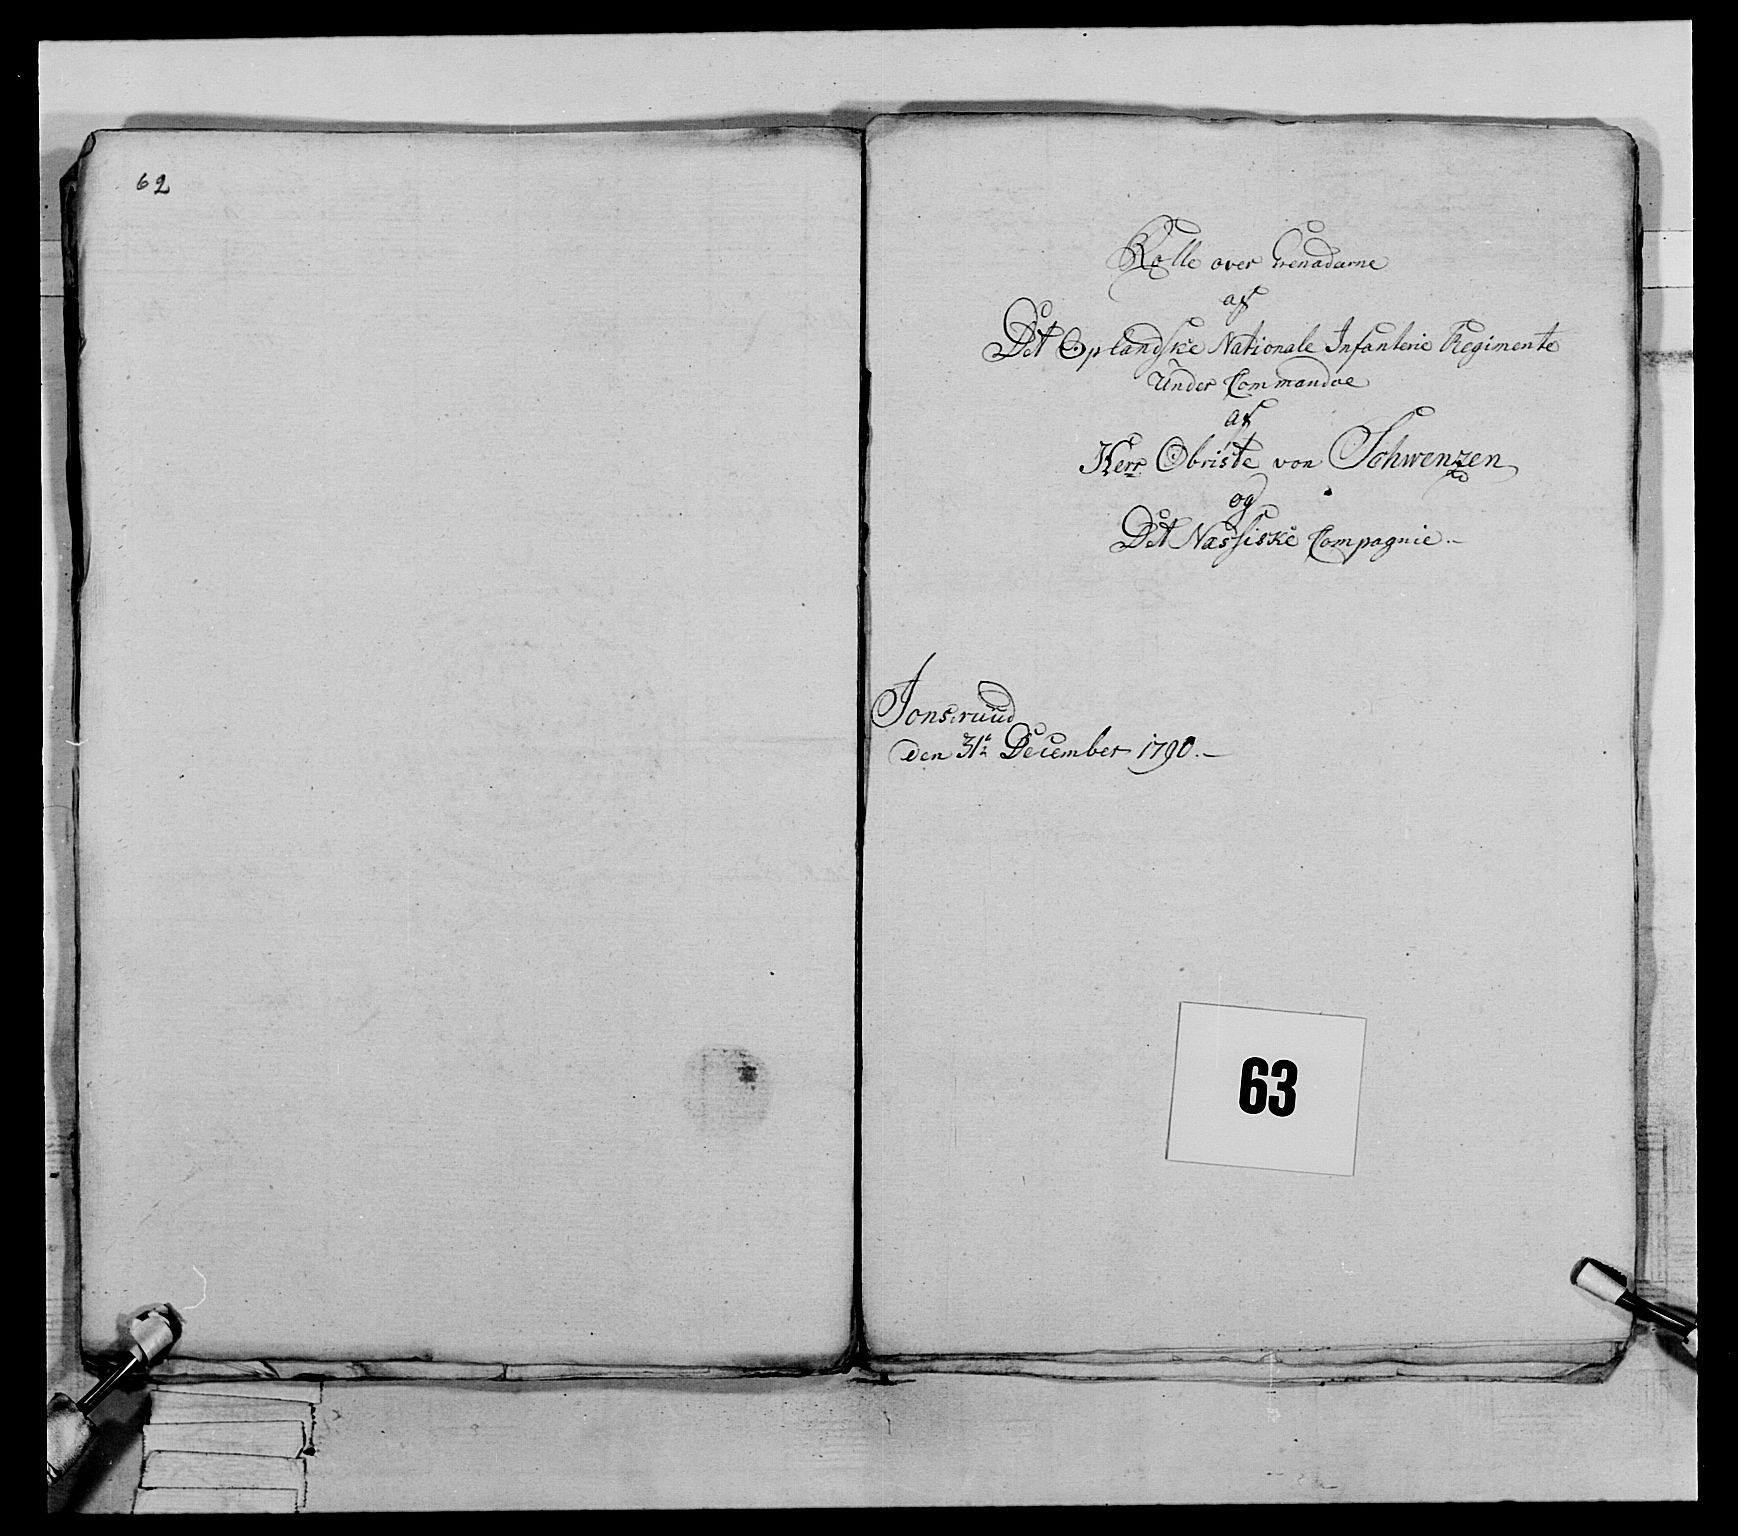 62
Rolle over Grenaderne
af
Det Oplandske Nationale Infanterie Regimente
Under Commandoe
af
Herr Obriste von Schwenzen
og
Det Næssiske Compagnie.
Jonsruud
den 31te December 1790.
63